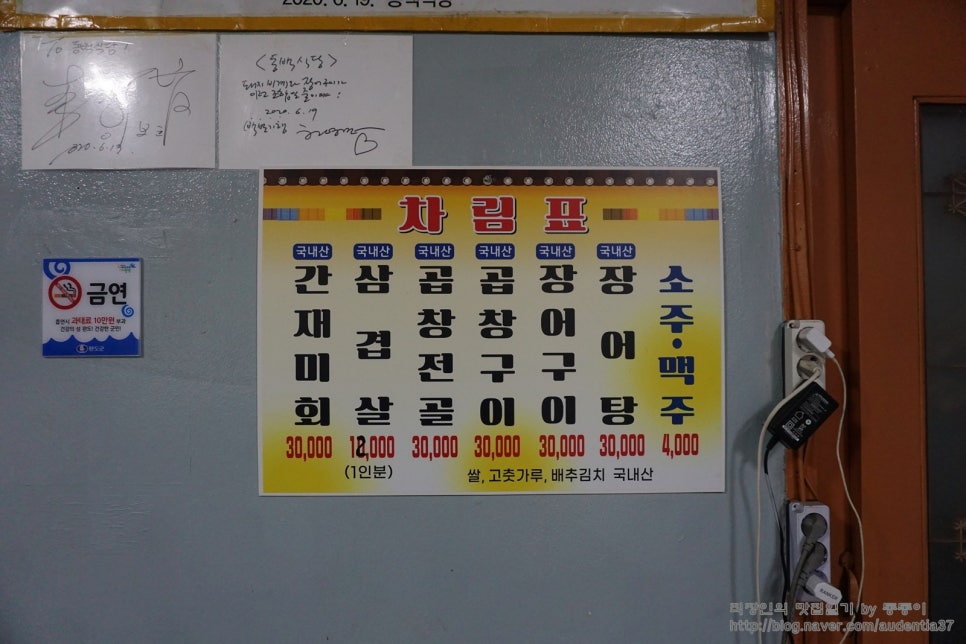 2020. 6. 19.
To 동백식당
2020.6.19.
<동백식당>
2020. 6. 19
차림표
국내산 국내산 국내산 국내산 국내산 국내산
간재미회 삼겹살 곱창전골 곱창구이 장어구이 장어탕 소주·맥주
30,000 12,000 30,000 30,000 30,000 30,000 4,000
(1인분)
쌀, 고춧가루, 배추김치 국내산
금연
흡연시 과태료 10만원 부과
건강의 섬 완도! 건강한 군민!
완도군
직장인의 맛집일기 by 뚱뚱이
http://blog.naver.com/audentia37